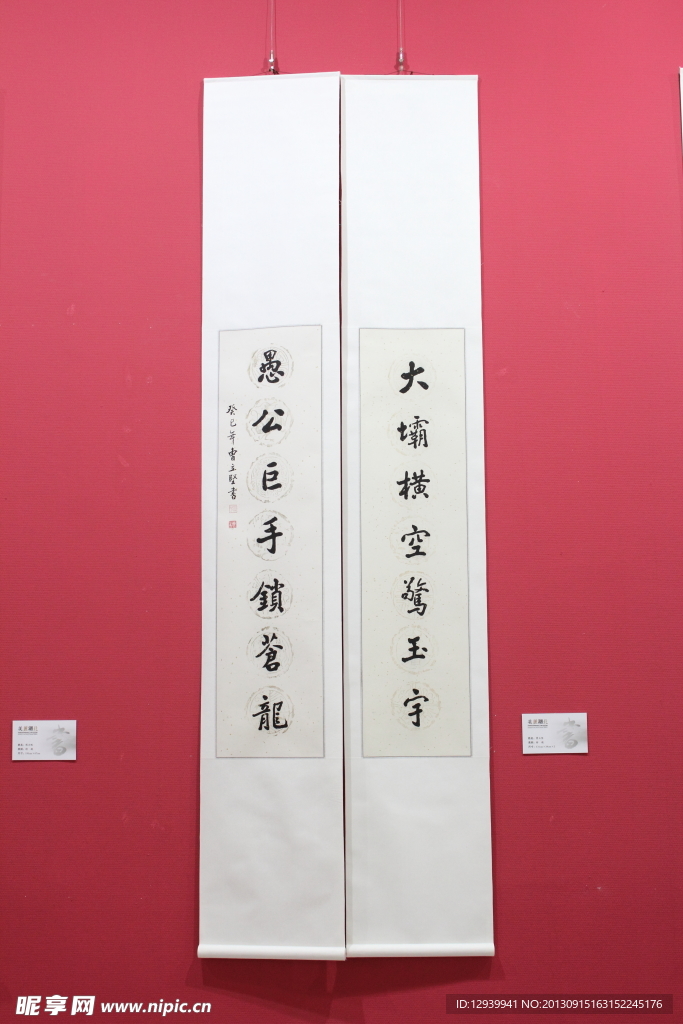 大壩橫空驚玉宇
愚公巨手鎖蒼龍
癸巳年曹立堅書
昵享网 www.nipic.cn
ID:12939941 NO:20130915163152245176